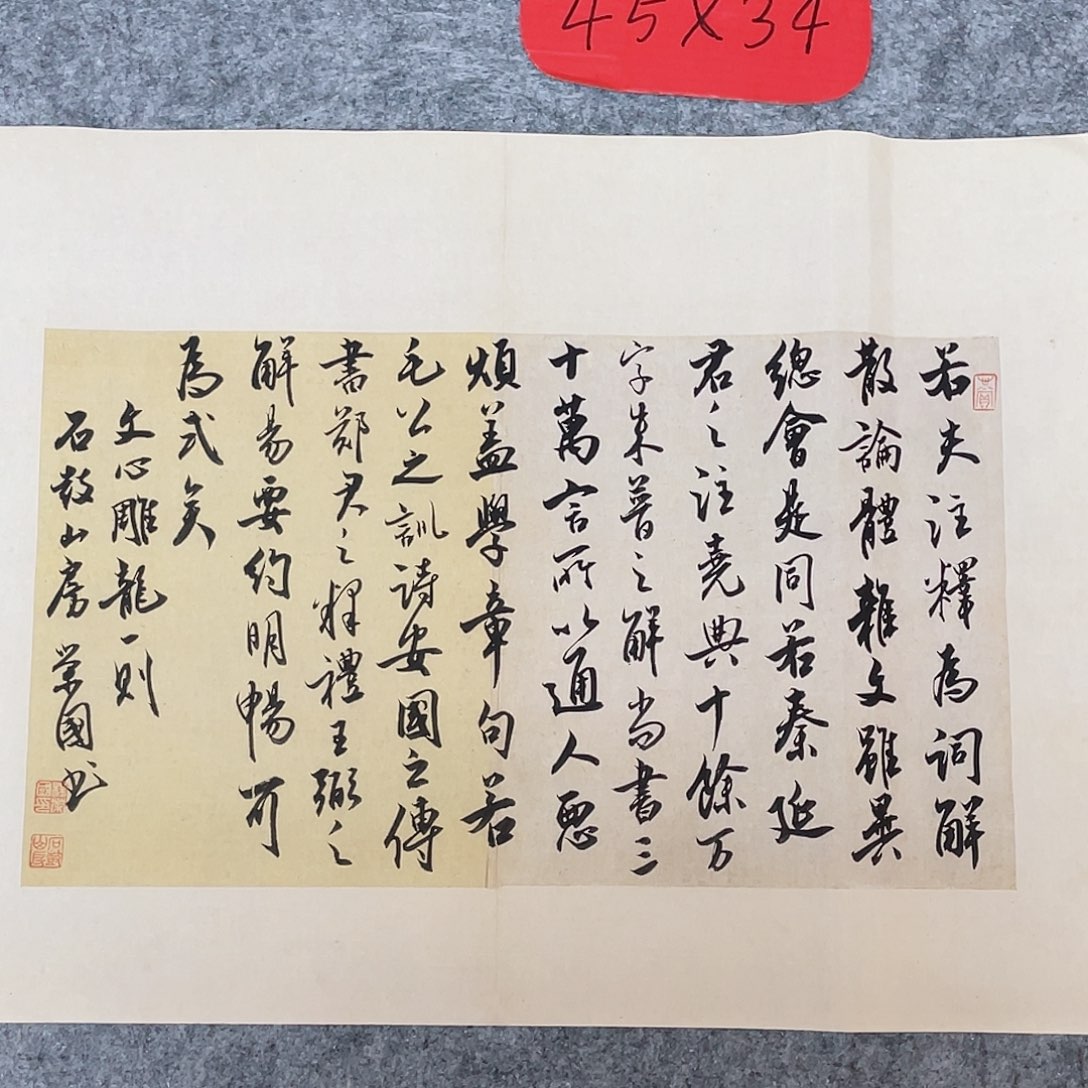 45X34
若夫注釋為詞解
散論體雜文雖異
總會是同若秦延
君之注堯典十餘万
字朱普之解尚書三
十萬言所以通人惡
煩盖學章句若
毛公之訓詩安國之傳
書鄭君之釋禮王弼之
解易要約明暢可
為式矣
文心雕龍一則
石鼓山房榮國書